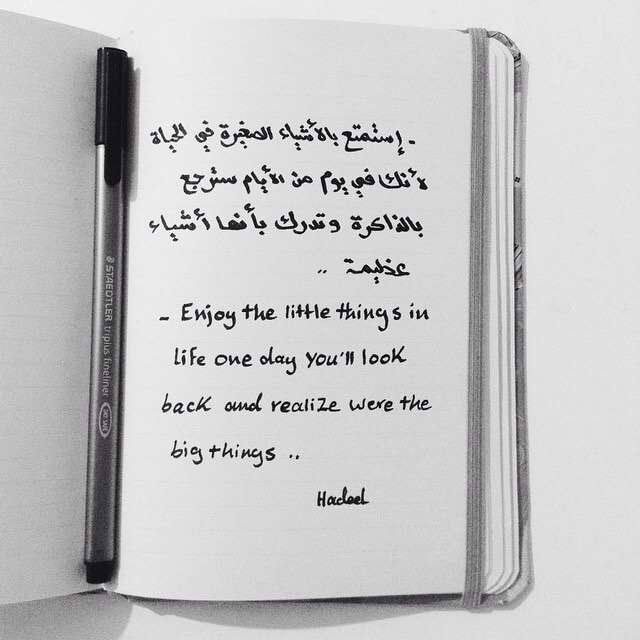 - إستمتع بالأشياء الصغيرة في الحياة
لأنك في يوم من الأيام سترجع
بالذاكرة وتدرك بأنها أشياء
عظيمة ..
- Enjoy the little things in
life one day you'll look
back and realize were the
big things ..
Hadeel
STAEDTLER triplus fineliner
DRY SAFE